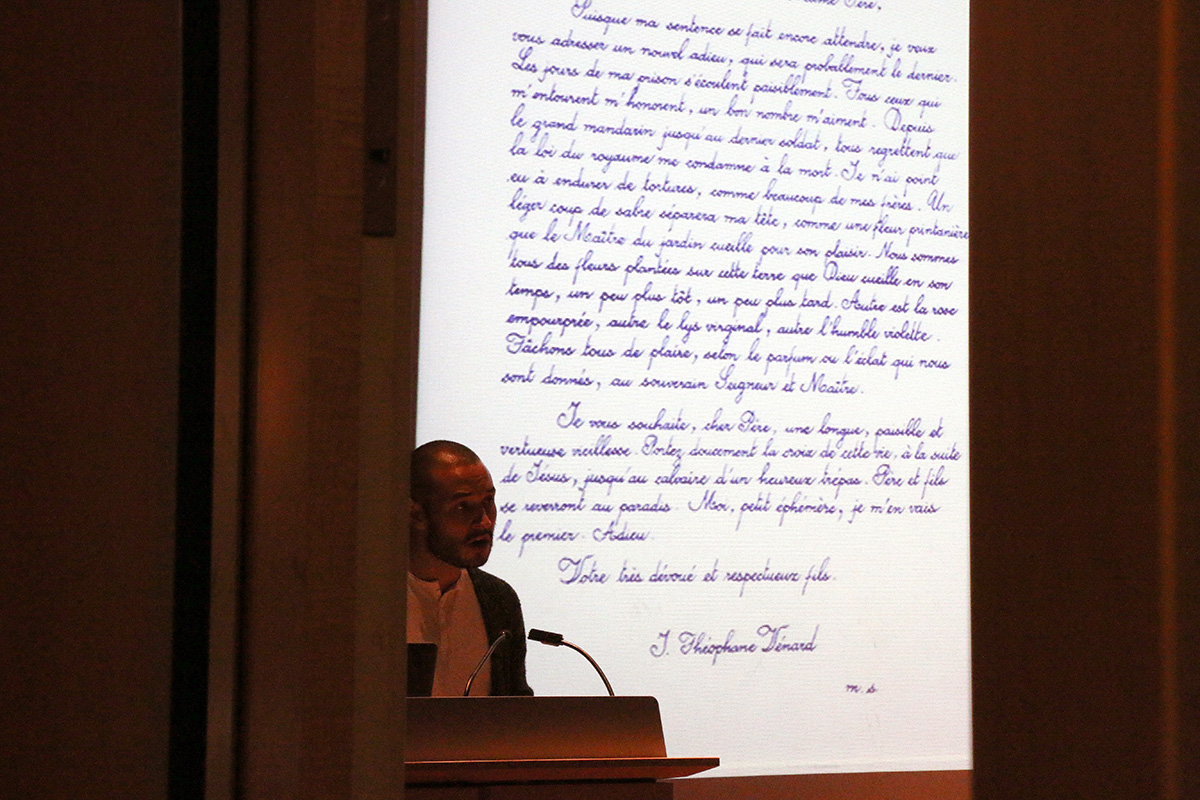 Père,
Puisque ma sentence se fait encore attendre, je veux
vous adresser un nouvel adieu, qui sera probablement le dernier.
Les jours de ma prison s'écoulent paisiblement. Tous ceux qui
m'entourent m'honorent, un bon nombre m'aiment. Depuis
le grand mandarin jusqu'au dernier soldat, tous regrettent que
la loi du royaume me condamne à la mort. Je n'ai point
eu à endurer de tortures, comme beaucoup de mes frères. Un
léger coup de sabre séparera ma tête, comme une fleur printanière
que le Maître du jardin cueille pour son plaisir. Nous sommes
tous des fleurs plantées sur cette terre que Dieu cueille en son
temps, un peu plus tôt, un peu plus tard. Autre est la rose
empourprée, autre le lys virginal, autre l'humble violette.
Tâchons tous de plaire, selon le parfum ou l'éclat qui nous
sont donnés, au souverain Seigneur et Maître.
Je vous souhaite, cher Père, une longue, paisible et
vertueuse vieillesse. Portez doucement la croix de cette vie, à la suite
de Jésus, jusqu'au calvaire d'un heureux trépas. Père et fils
se reverront au paradis. Moi, petit éphémère, je m'en vais
le premier. Adieu.
Votre très dévoué et respectueux fils.
J. Théophane Vénard
m.s.